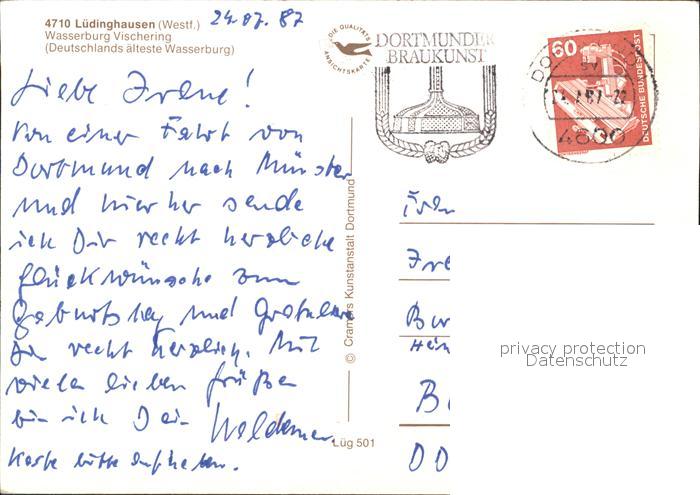 4710 Lüdinghausen (Westf.) 24.07.87
Wasserburg Vischering
(Deutschlands älteste Wasserburg)
DIE QUALITÄTS
ANSICHTSKARTE
DORTMUNDER
BRAUKUNST
60
DEUTSCHE BUNDESPOST
4600
Liebe Irene!
Von einer Fahrt von
Dortmund nach Münster
und hierher sende
ich Dir recht herzliche
Glückwünsche zum
Geburtstag und gratuliere
Dir recht herzlich. Mit
vielen lieben Grüßen
bin ich Dein Waldemar.
Karte bitte aufheben.
© Cramers Kunstanstalt Dortmund
Lüg 501
privacy protection
Datenschutz